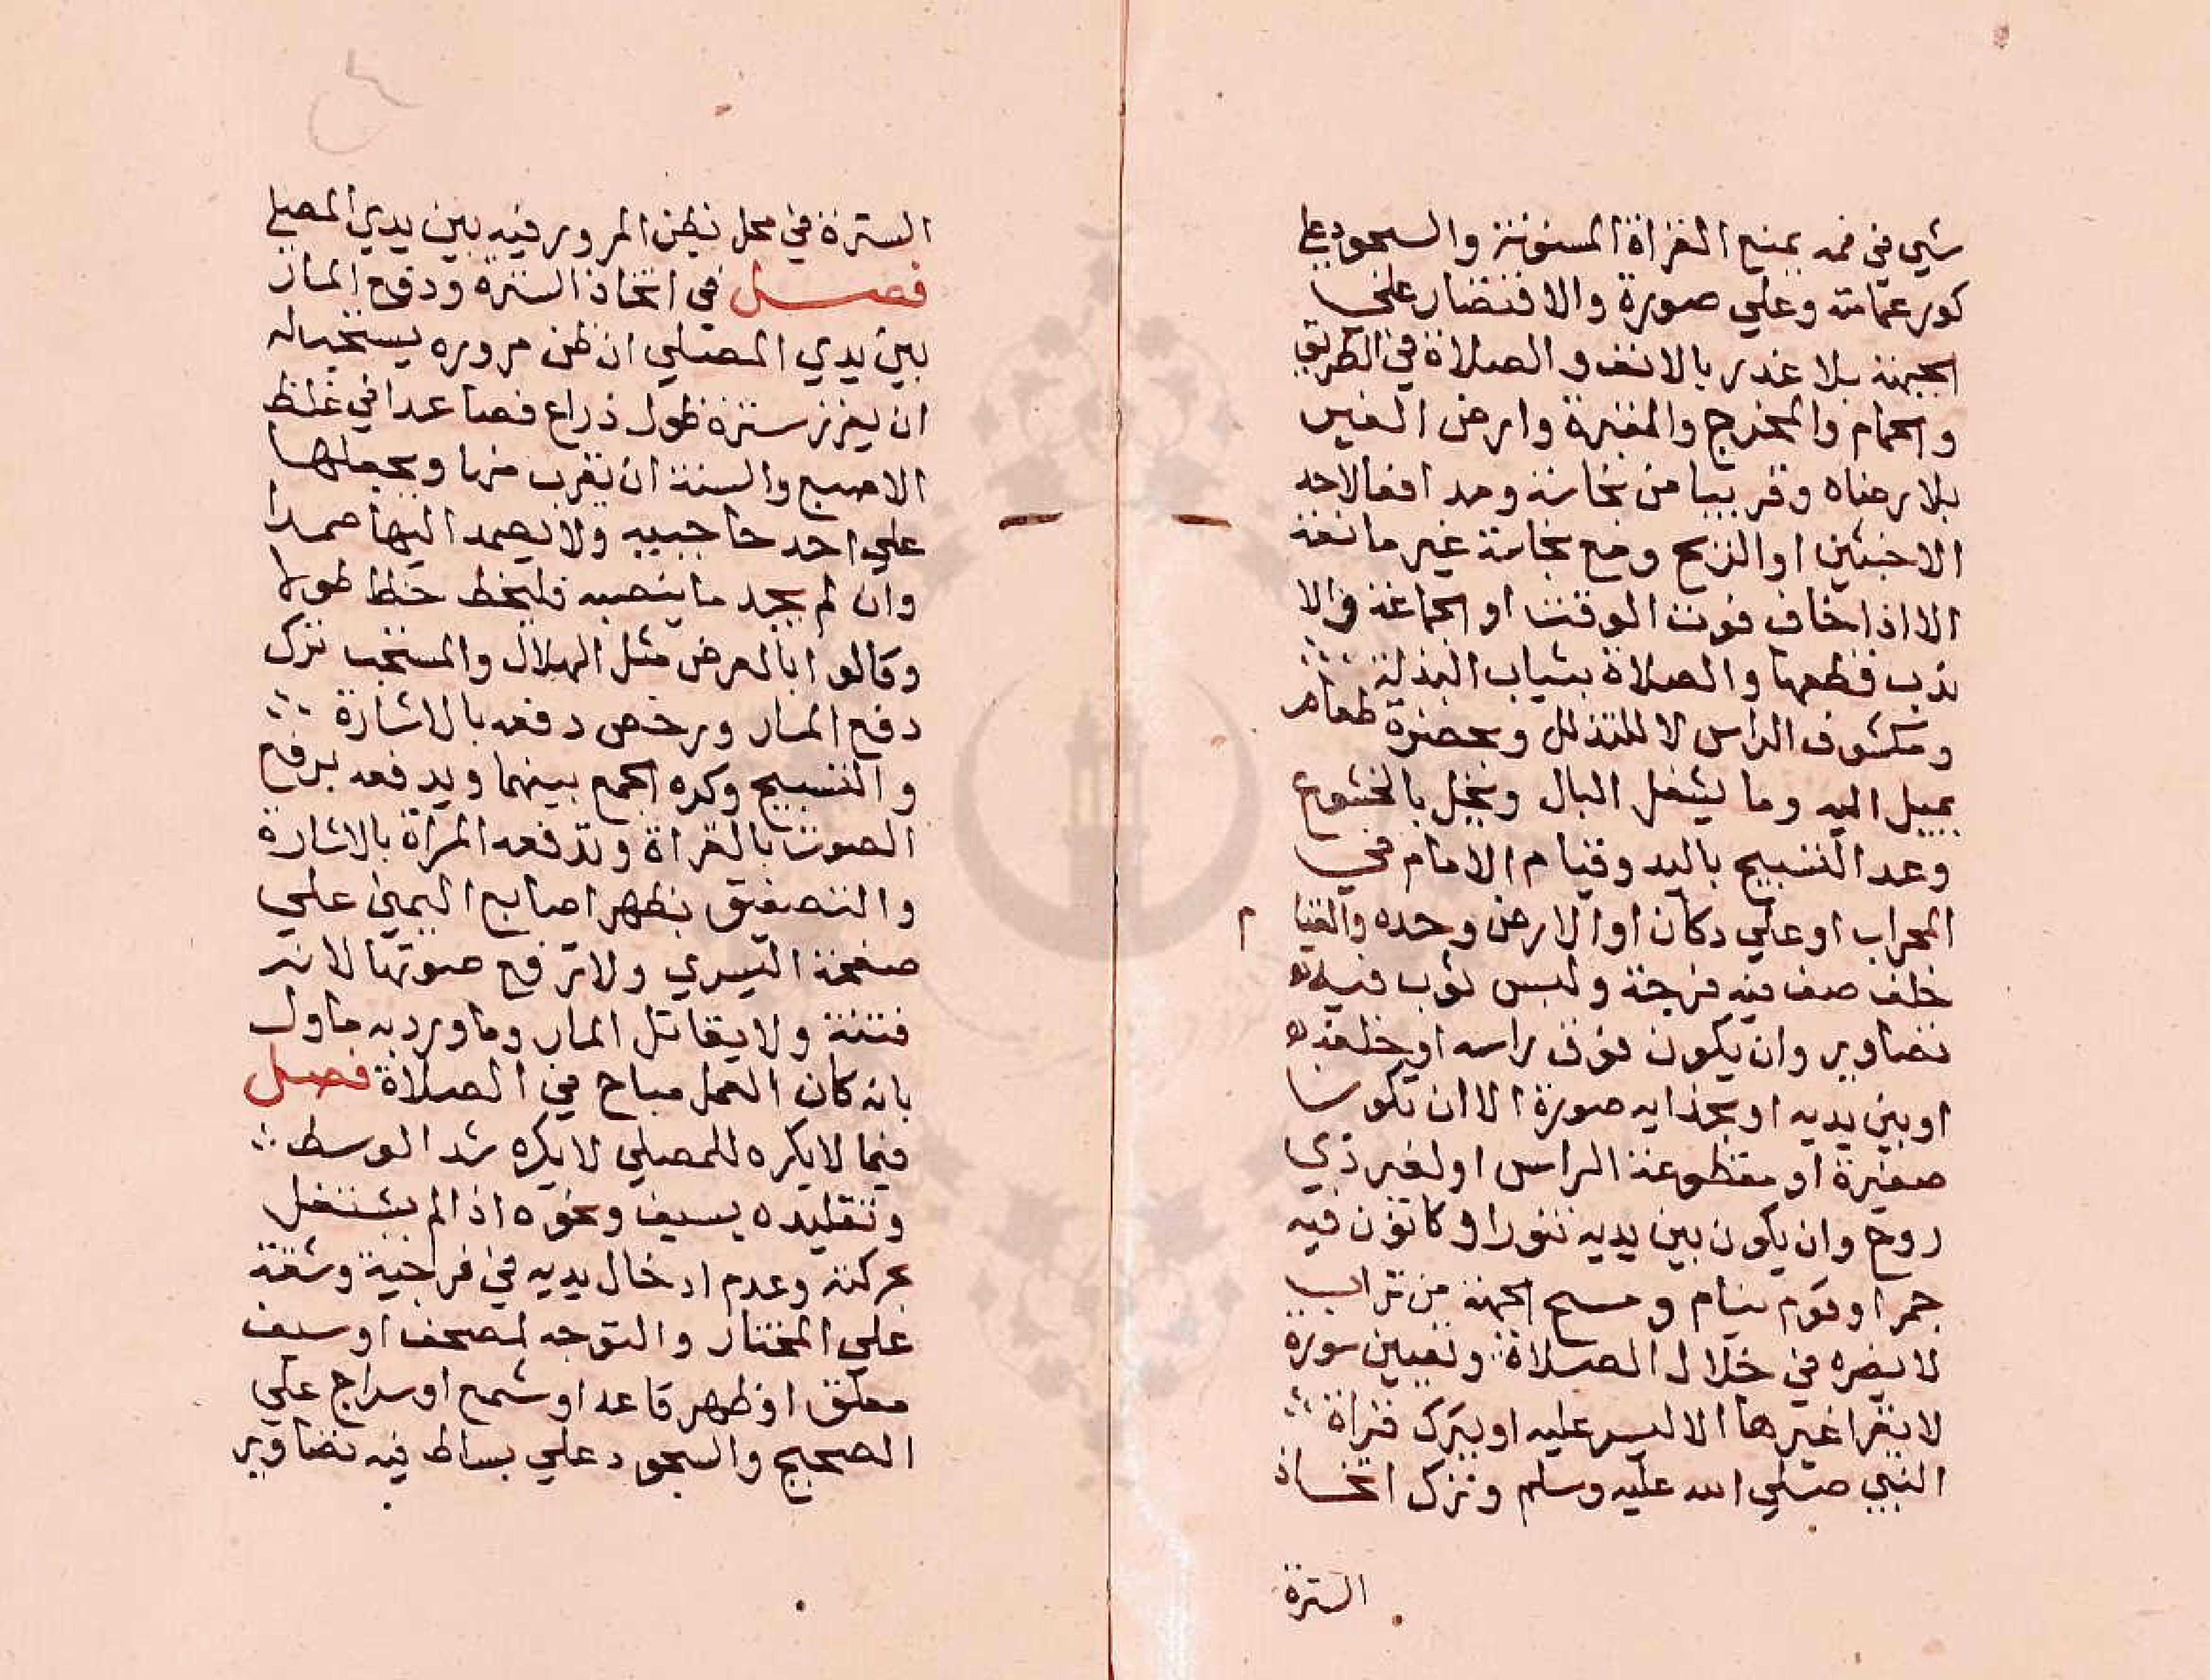 شي في فمه يمنع القراة المسنونة والسجود علي
كور عمامته وعلي صورة والاقتصار علي
الجبهة بلا عذر بالانف والصلاة في الطريق
والحمام والمخرج والمقبرة وارض الغير
بلا رضاه وقريبا من نجاسة ومدافعا لاحد
الاخبثين او الريح ومع نجاسة غير مانعة
الا اذا خاف فوت الوقت او الجماعة والا
ندب قطعها والصلاة بثياب البذلة
ومكشوف الراس لا للتذلل وبحضرة طعام
يميل اليه وما يشغل البال ويخل بالخشوع
وعد التسبيح باليد وقيام الامام في
المحراب او علي دكان او الارض وحده والقيام
خلف صف فيه فرجة ولبس ثوب فيه
تصاوير وان يكون فوق راسه او خلفه
او بين يديه او بحذايه صورة الا ان تكون
صغيرة او مقطوعة الراس او لغير ذي
روح وان يكون بين يديه تنور او كانون فيه
جمر او قوم نيام ومسح الجبهة من تراب
لا يضره في خلال الصلاة وتعيين سورة
لا يقرا غيرها الا ليسر عليه او تبرك قراة
النبي صلي الله عليه وسلم وترك اتخاذ
السترة
السترة في محل نظن المرور فيه بين يدي المصلي
فصل في اتخاذ السترة ودفع المار
بين يدي المصلي ان ظن مروره يستحب له
ان يغرز سترة طول ذراع فصاعدا في غلظ
الاصبع والسنة ان يقرب منها ويجعلها
علي احد حاجبيه ولا يصمد اليها صمدا
وان لم يجد ما ينصبه فليخط خطا طولا
وقالوا بالعرض مثل الهلال والمستحب ترك
دفع المار ورخص دفعه بالاشارة
والتسبيح وكره الجمع بينهما ويدفعه برفع
الصوت بالقراة وتدفعه المراة بالاشارة
والتصفيق بظهر اصابع اليمين علي
صفحة اليسري ولا ترفع صوتها لانه
فتنة ولا يقاتل المار وما ورد به ماول
بانه كان العمل مباح في الصلاة فصل
فيما لا يكره للمصلي لا يكره شد الوسط
وتقليده بسيف ونحوه اذا لم يشتغل
بحركته وعدم ادخال يديه في فرجية وشقة
علي المختار والتوجه لمصحف او سيف
معلق او ظهر قاعد او شمع او سراج علي
الصحيح والسجود علي بساط فيه تصاوير